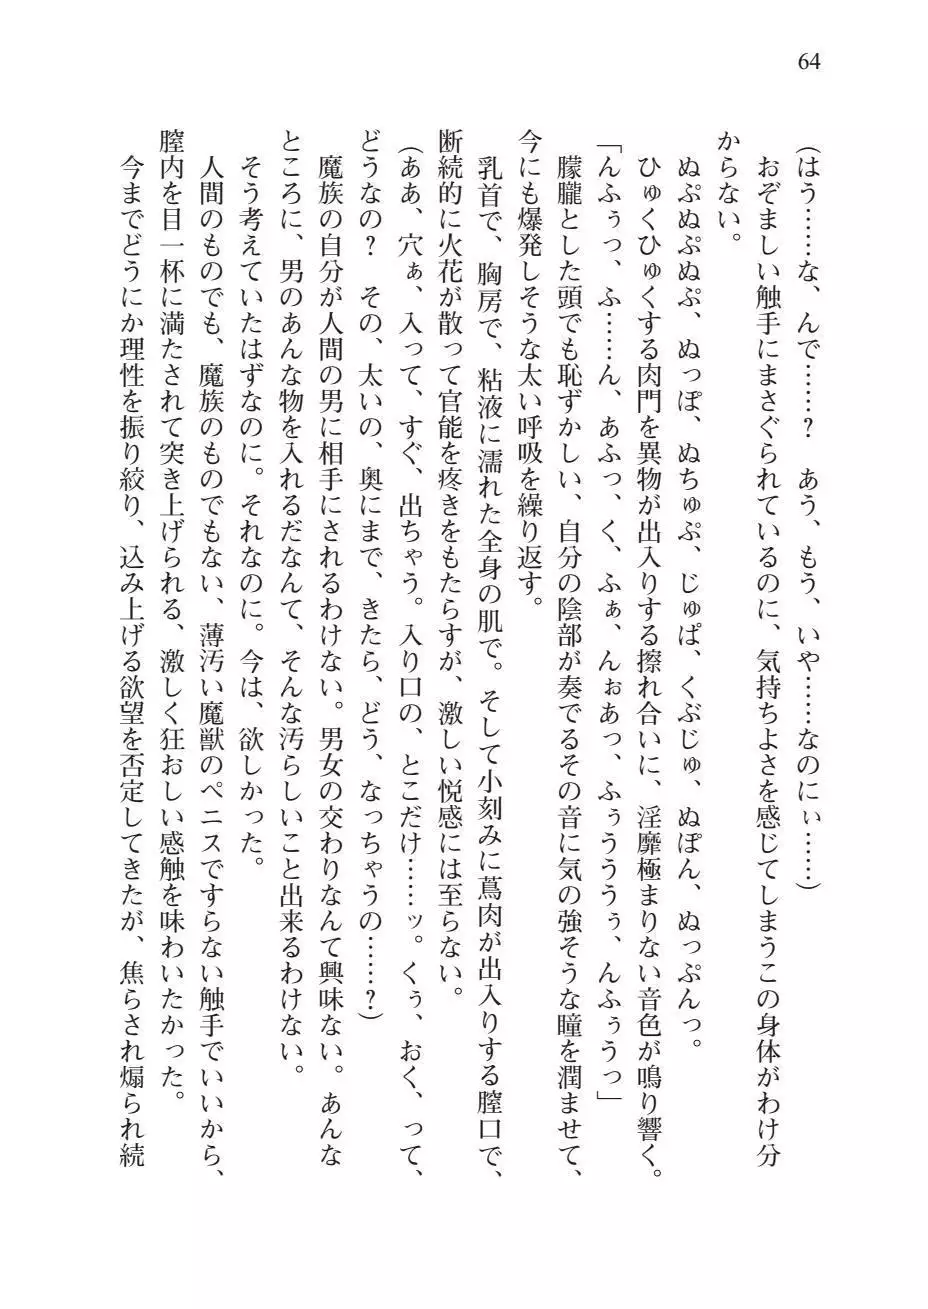 64
(はう……な、んで……？　あう、もう、いや……なのにぃ……)
おぞましい触手にまさぐられているのに、気持ちよさを感じてしまうこの身体がわけ分
からない。
ぬぷぬぷぬぷ、ぬっぽ、ぬちゅぷ、じゅぱ、くぶじゅ、ぬぽん、ぬっぷんっ。
ひゅくひゅくする肉門を異物が出入りする擦れ合いに、淫靡極まりない音色が鳴り響く。
「んふぅっ、ふ……ん、あふっ、く、ふぁ、んぉあっ、ふぅううぅ、んふぅうっ」
朦朧とした頭でも恥ずかしい、自分の陰部が奏でるその音に気の強そうな瞳を潤ませて、
今にも爆発しそうな太い呼吸を繰り返す。
乳首で、胸房で、粘液に濡れた全身の肌で。そして小刻みに蔦肉が出入りする膣口で、
断続的に火花が散って官能を疼きをもたらすが、激しい悦感には至らない。
(ああ、穴ぁ、入って、すぐ、出ちゃう。入り口の、とこだけ……ッ。くぅ、おく、って、
どうなの？　その、太いの、奥にまで、きたら、どう、なっちゃうの……？)
魔族の自分が人間の男に相手にされるわけない。男女の交わりなんて興味ない。あんな
ところに、男のあんな物を入れるだなんて、そんな汚らしいこと出来るわけない。
そう考えていたはずなのに。それなのに。今は、欲しかった。
人間のものでも、魔族のものでもない、薄汚い魔獣のペニスですらない触手でいいから、
膣内を目一杯に満たされて突き上げられる、激しく狂おしい感触を味わいたかった。
今までどうにか理性を振り絞り、込み上げる欲望を否定してきたが、焦らされ煽られ続